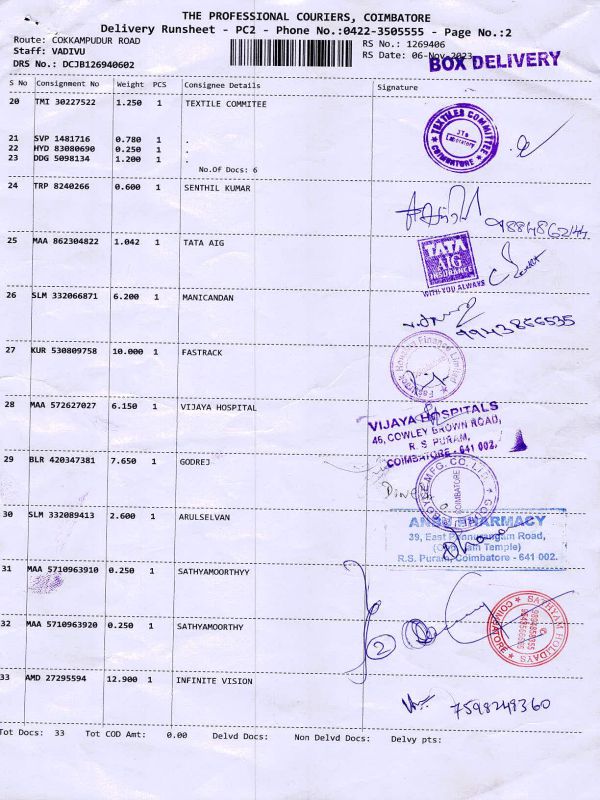 THE PROFESSIONAL COURIERS, COIMBATORE
Delivery Runsheet - PC2 - Phone No.:0422-3505555 - Page No.:2
Route: COKKAMPUDUR ROAD RS No.: 1269406
Staff: VADIVU RS Date: 06-Nov-2023
BOX DELIVERY
DRS No.: DCJB126940602
S No Consignment No Weight PCS Consignee Details Signature
20 TMI 30227522 1.250 1 TEXTILE COMMITEE
TEXTILES COMMITTEE
Laboratory
COIMBATORE
21 SVP 1481716 0.780 1 .
22 HYD 83080690 0.250 1 .
23 DDG 5098134 1.200 1 .
No.Of Docs: 6
24 TRP 8240266 0.600 1 SENTHIL KUMAR
9884862144
25 MAA 862304822 1.042 1 TATA AIG
TATA
AIG
INSURANCE
WITH YOU ALWAYS
26 SLM 332066871 6.200 1 MANICANDAN
9943866535
27 KUR 530809758 10.000 1 FASTRACK
Housing Finance Limited
28 MAA 572627027 6.150 1 VIJAYA HOSPITAL
VIJAYA HOSPITALS
46, COWLEY BROWN ROAD,
R. S. PURAM,
COIMBATORE - 641 002.
29 BLR 420347381 7.650 1 GODREJ
MFG. CO. LTD.
COIMBATORE
30 SLM 332089413 2.600 1 ARULSELVAN
PHARMACY
39, East
Temple)
R.S. Puram, Coimbatore - 641 002.
31 MAA 5710963910 0.250 1 SATHYAMOORTHYY
32 MAA 5710963920 0.250 1 SATHYAMOORTHY
2
SATHYAM HOLIDAYS
COIMBATORE
33 AMD 27295594 12.900 1 INFINITE VISION
7598249360
Tot Docs: 33 Tot COD Amt: 0.00 Delvd Docs: Non Delvd Docs: Delvy pts: